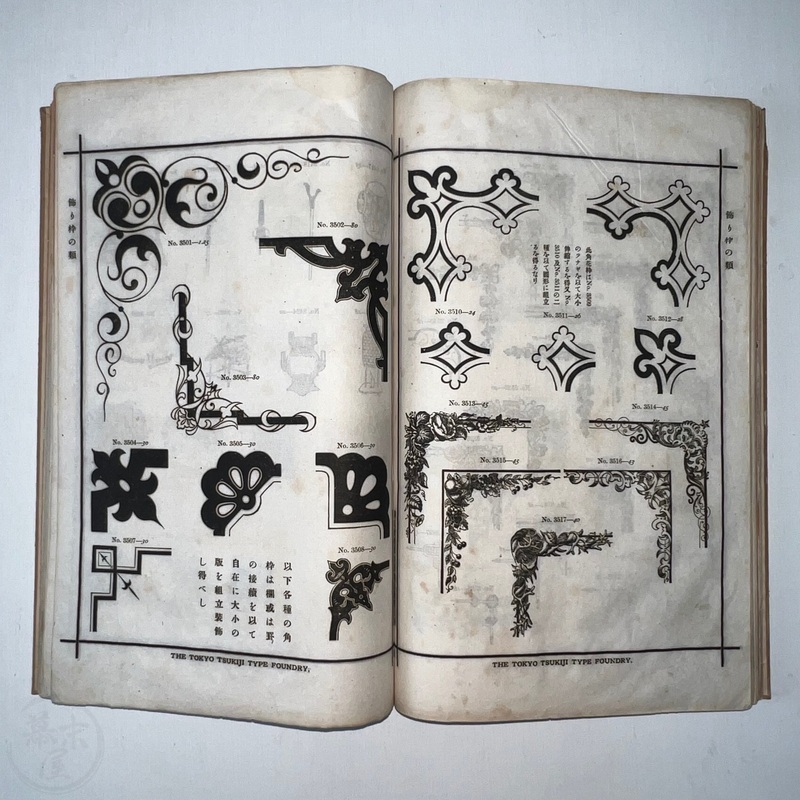 飾り枠の類
No. 3501—1.25
No. 3502—80
No. 3503—80
No. 3504—30
No. 3505—30
No. 3506—30
No. 3507—30
No. 3508—30
以下各種の角
枠は欄或は罫
の接續を以て
自在に大小の
版を組立裝飾
し得べし
THE TOKYO TSUKIJI TYPE FOUNDRY.
飾り枠の類
此角花枠はNo. 3509
のツナギを以て大小
伸縮するを得又No.
3510及No. 3511の二
種を以て圓形に組立
るを得るなり
No. 3510—24
No. 3511—26
No. 3512—28
No. 3513—25
No. 3514—25
No. 3515—25
No. 3516—25
No. 3517—40
THE TOKYO TSUKIJI TYPE FOUNDRY.